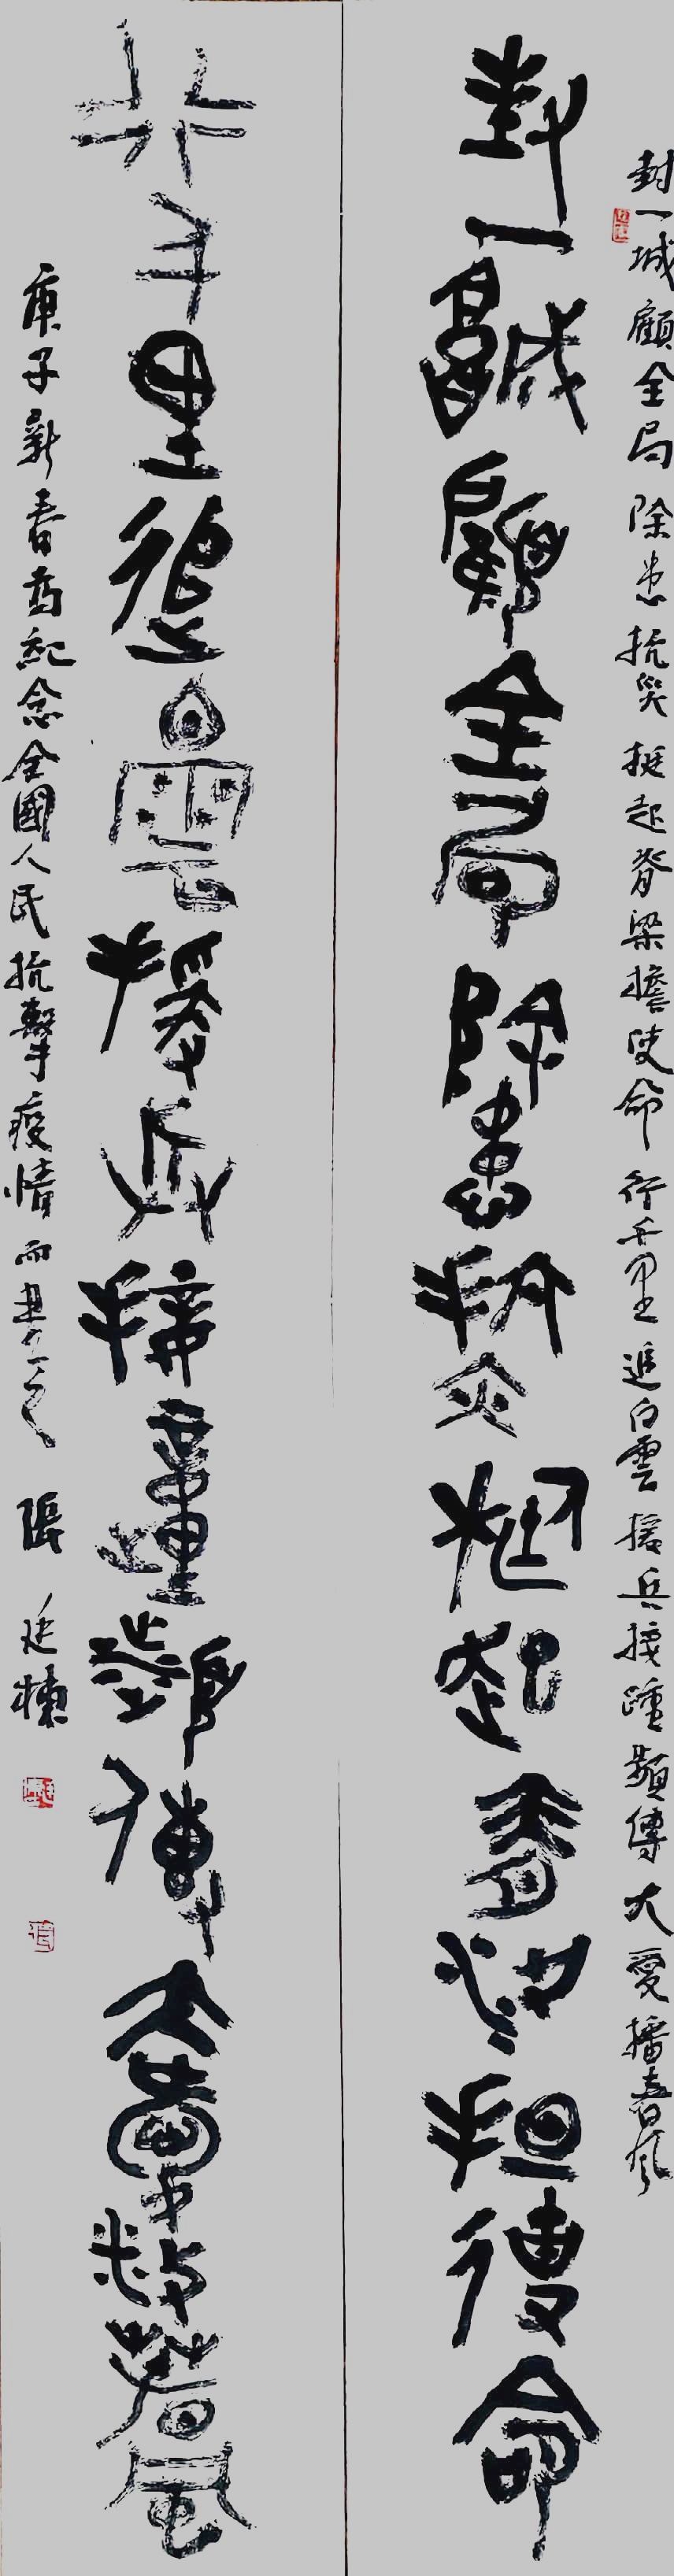 封一城顧全局除患抗災挺起脊梁擔使命行千里追白雲援兵接踵頻傳大愛播春風
封一城顧全局除患抗災挺起脊梁担使命
行千里追白雲援兵接踵頻傳大愛播春風
庚子新春為紀念全國人民抗擊疫情而書之 張廷棟